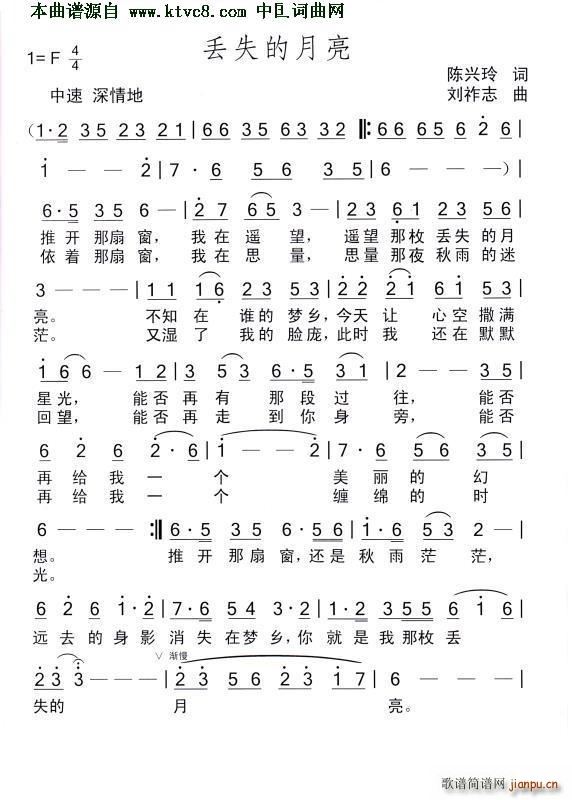 本曲谱源自 www.ktvc8.com 中国词曲网
丢失的月亮
1= F 4/4
陈兴玲 词
中速 深情地
刘祚志 曲
(1·2 35 23 21 | 66 63 35 52 ‖: 63 65 6 26
1 — — 2 | 7·6 5 6 35 | 6 — — )|
6·5 35 6 — | 27 65 3 — | 23 61 23 56 |
推开那扇窗,我在遥望,遥望那枚丢失的月
依着那扇窗,我在思量,思量那夜秋雨的迷
3 — — | 11 16 23 53 | 22 21 61 53 |
亮。不知在谁的梦乡,今天让心空撒满
茫。又湿了我的脸庞,此时我还在默默
16 6 — 12 | 3 53 6·5 35 | 2 — — 35 |
星光,能否再有那段过往,能否
回望,能否再走到你身旁,能否
6 2 6 2·6 | 1 — — 2 | 7·6 5 6 35 |
再给我一个美丽的幻
再给我一个缠绵的时
6 — — — :‖ 6·5 35 6·56 | 1·6 53 2 — |
想。推开那扇窗,还是秋雨茫茫,
光。
6 2 6 12·2 | 7·6 54 3·3 | 1·2 35 6 16 |
远去的身影消失在梦乡,你就是我那枚丢
∨ 渐慢
23 3 — — | 23 56 23 17 | 6 — — — |
失的月亮。
歌谱简谱网 jianpu.cn